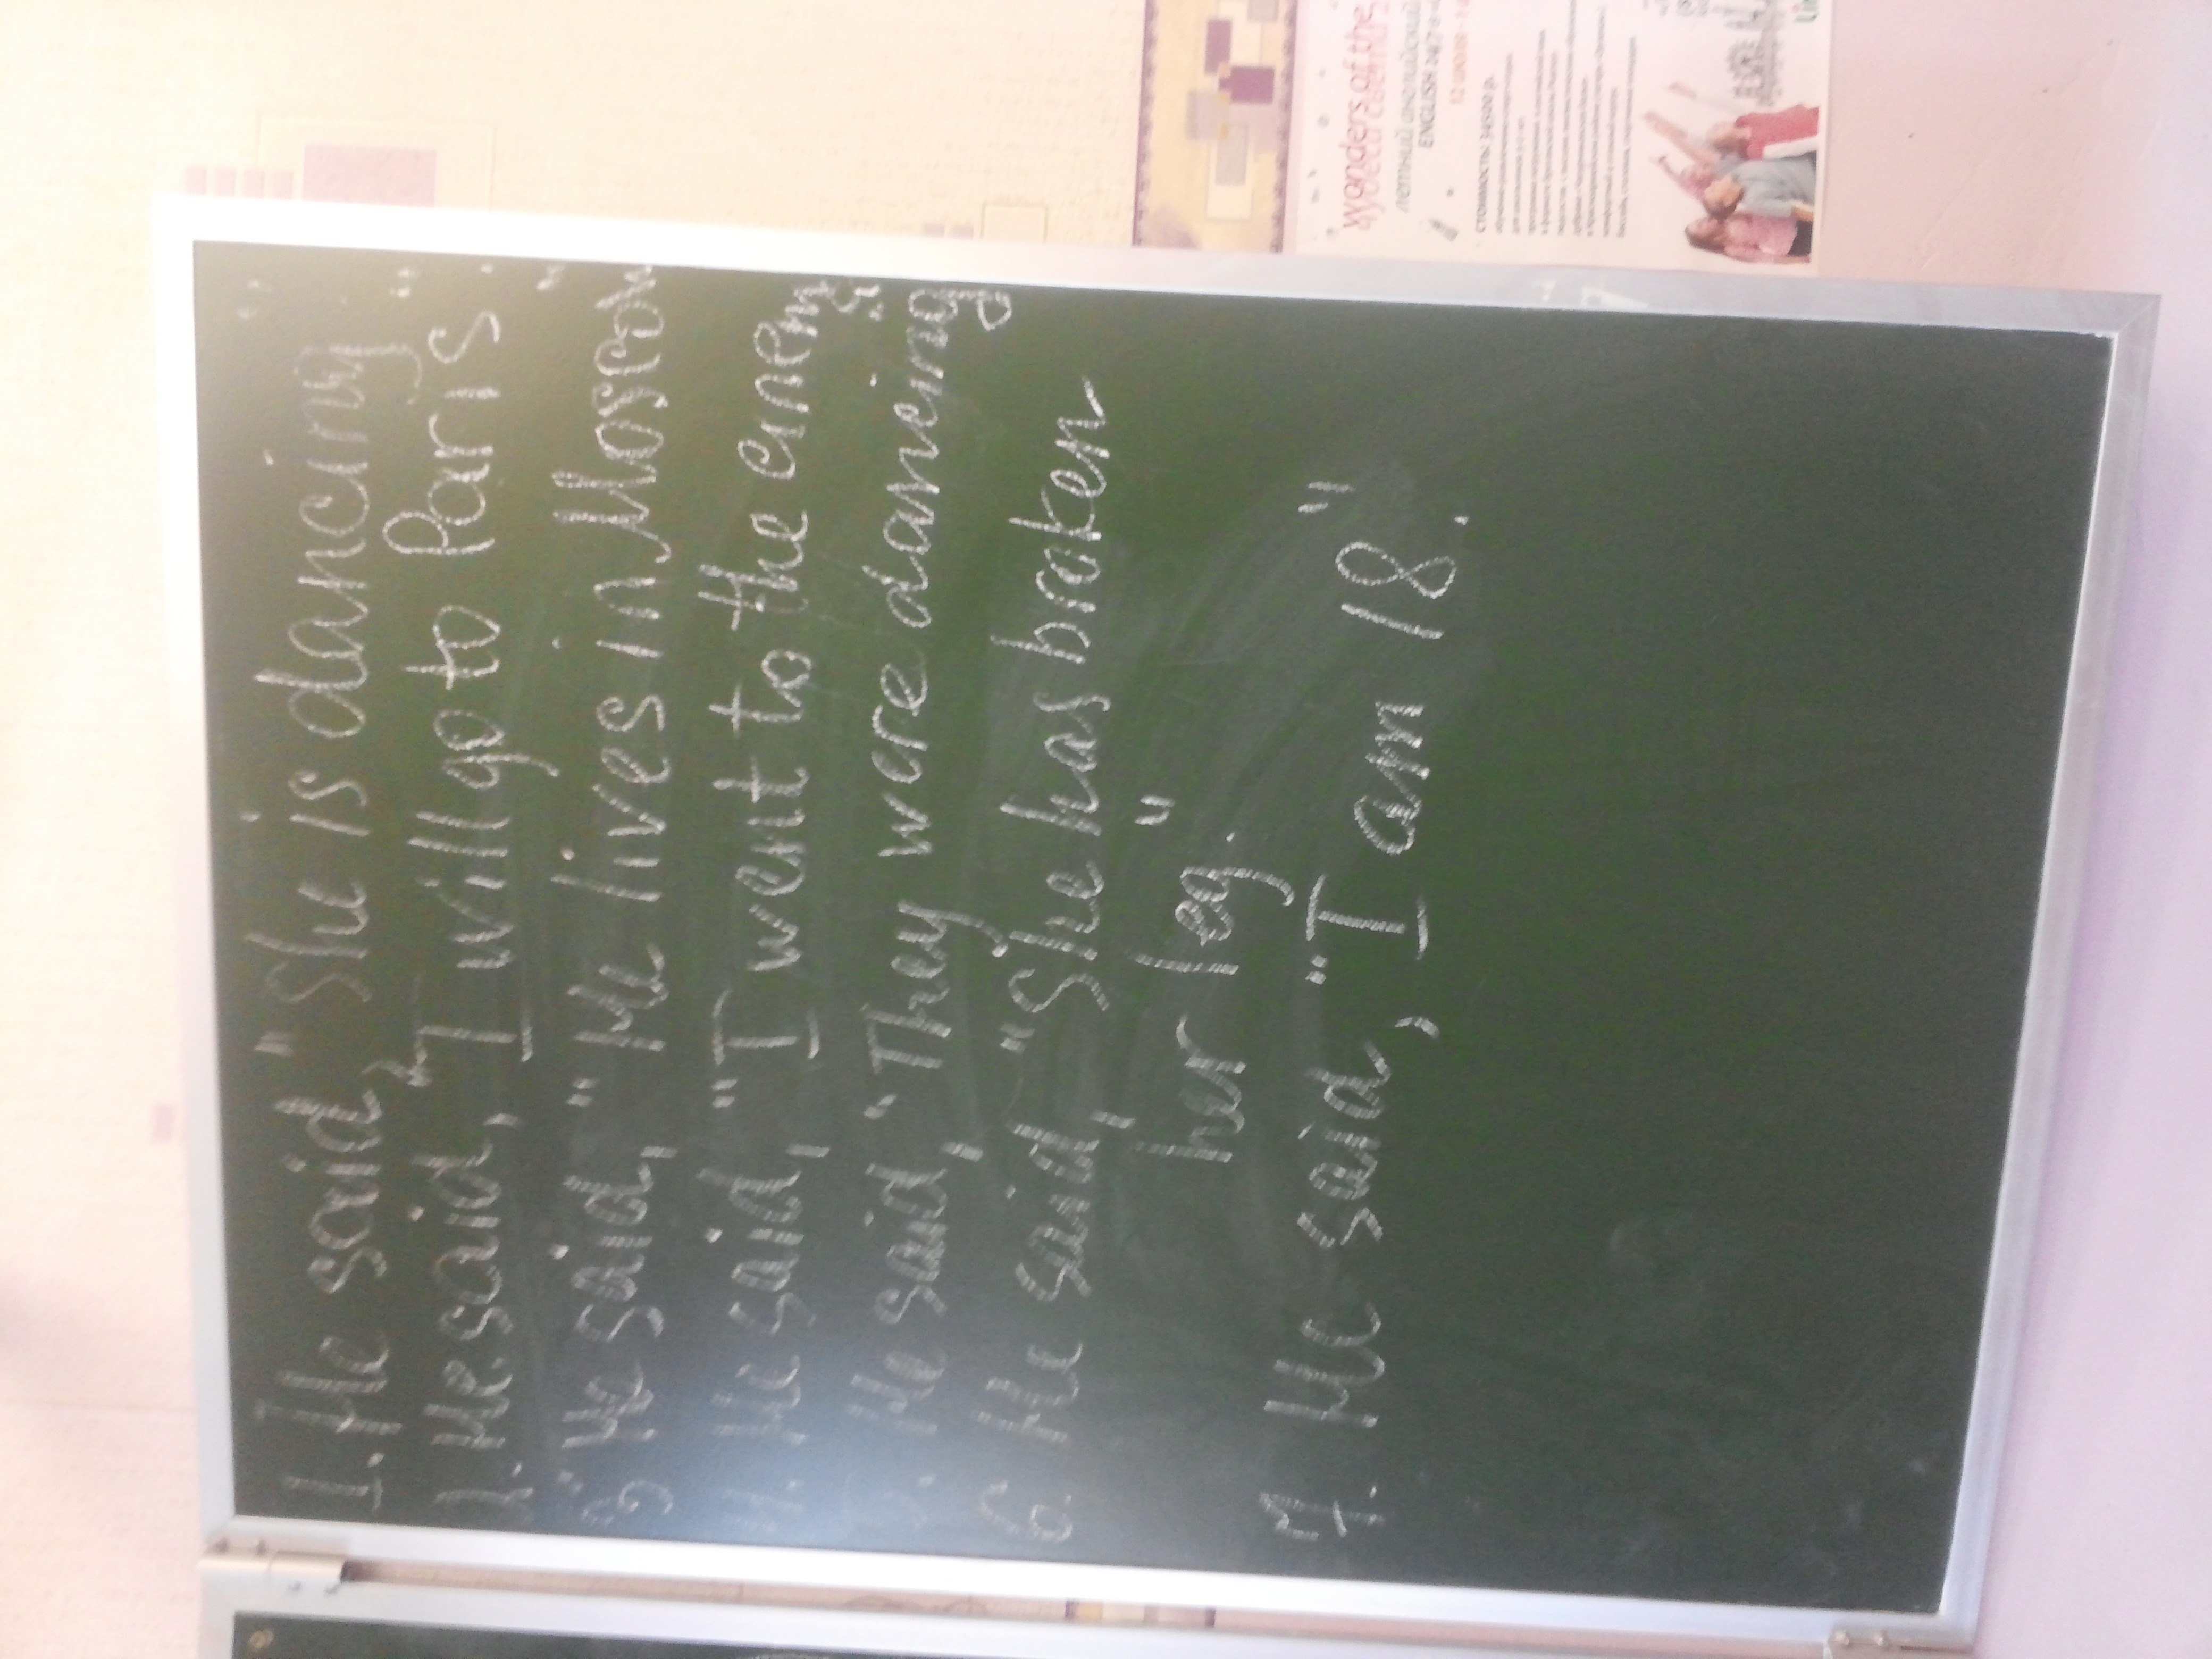 1. He said, "She is dancing"
2. He said, "I will go to Paris."
3. He said, "He lives in Moscow"
4. He said, "I went to the cinema."
5. He said, "They were dancing"
6. He said, "She has broken
her leg."
7. He said, "I am 18."
wonders of the
летний английский
ENGLISH 24/7
12 июля -
СТОИМОСТЬ: 34500 р.